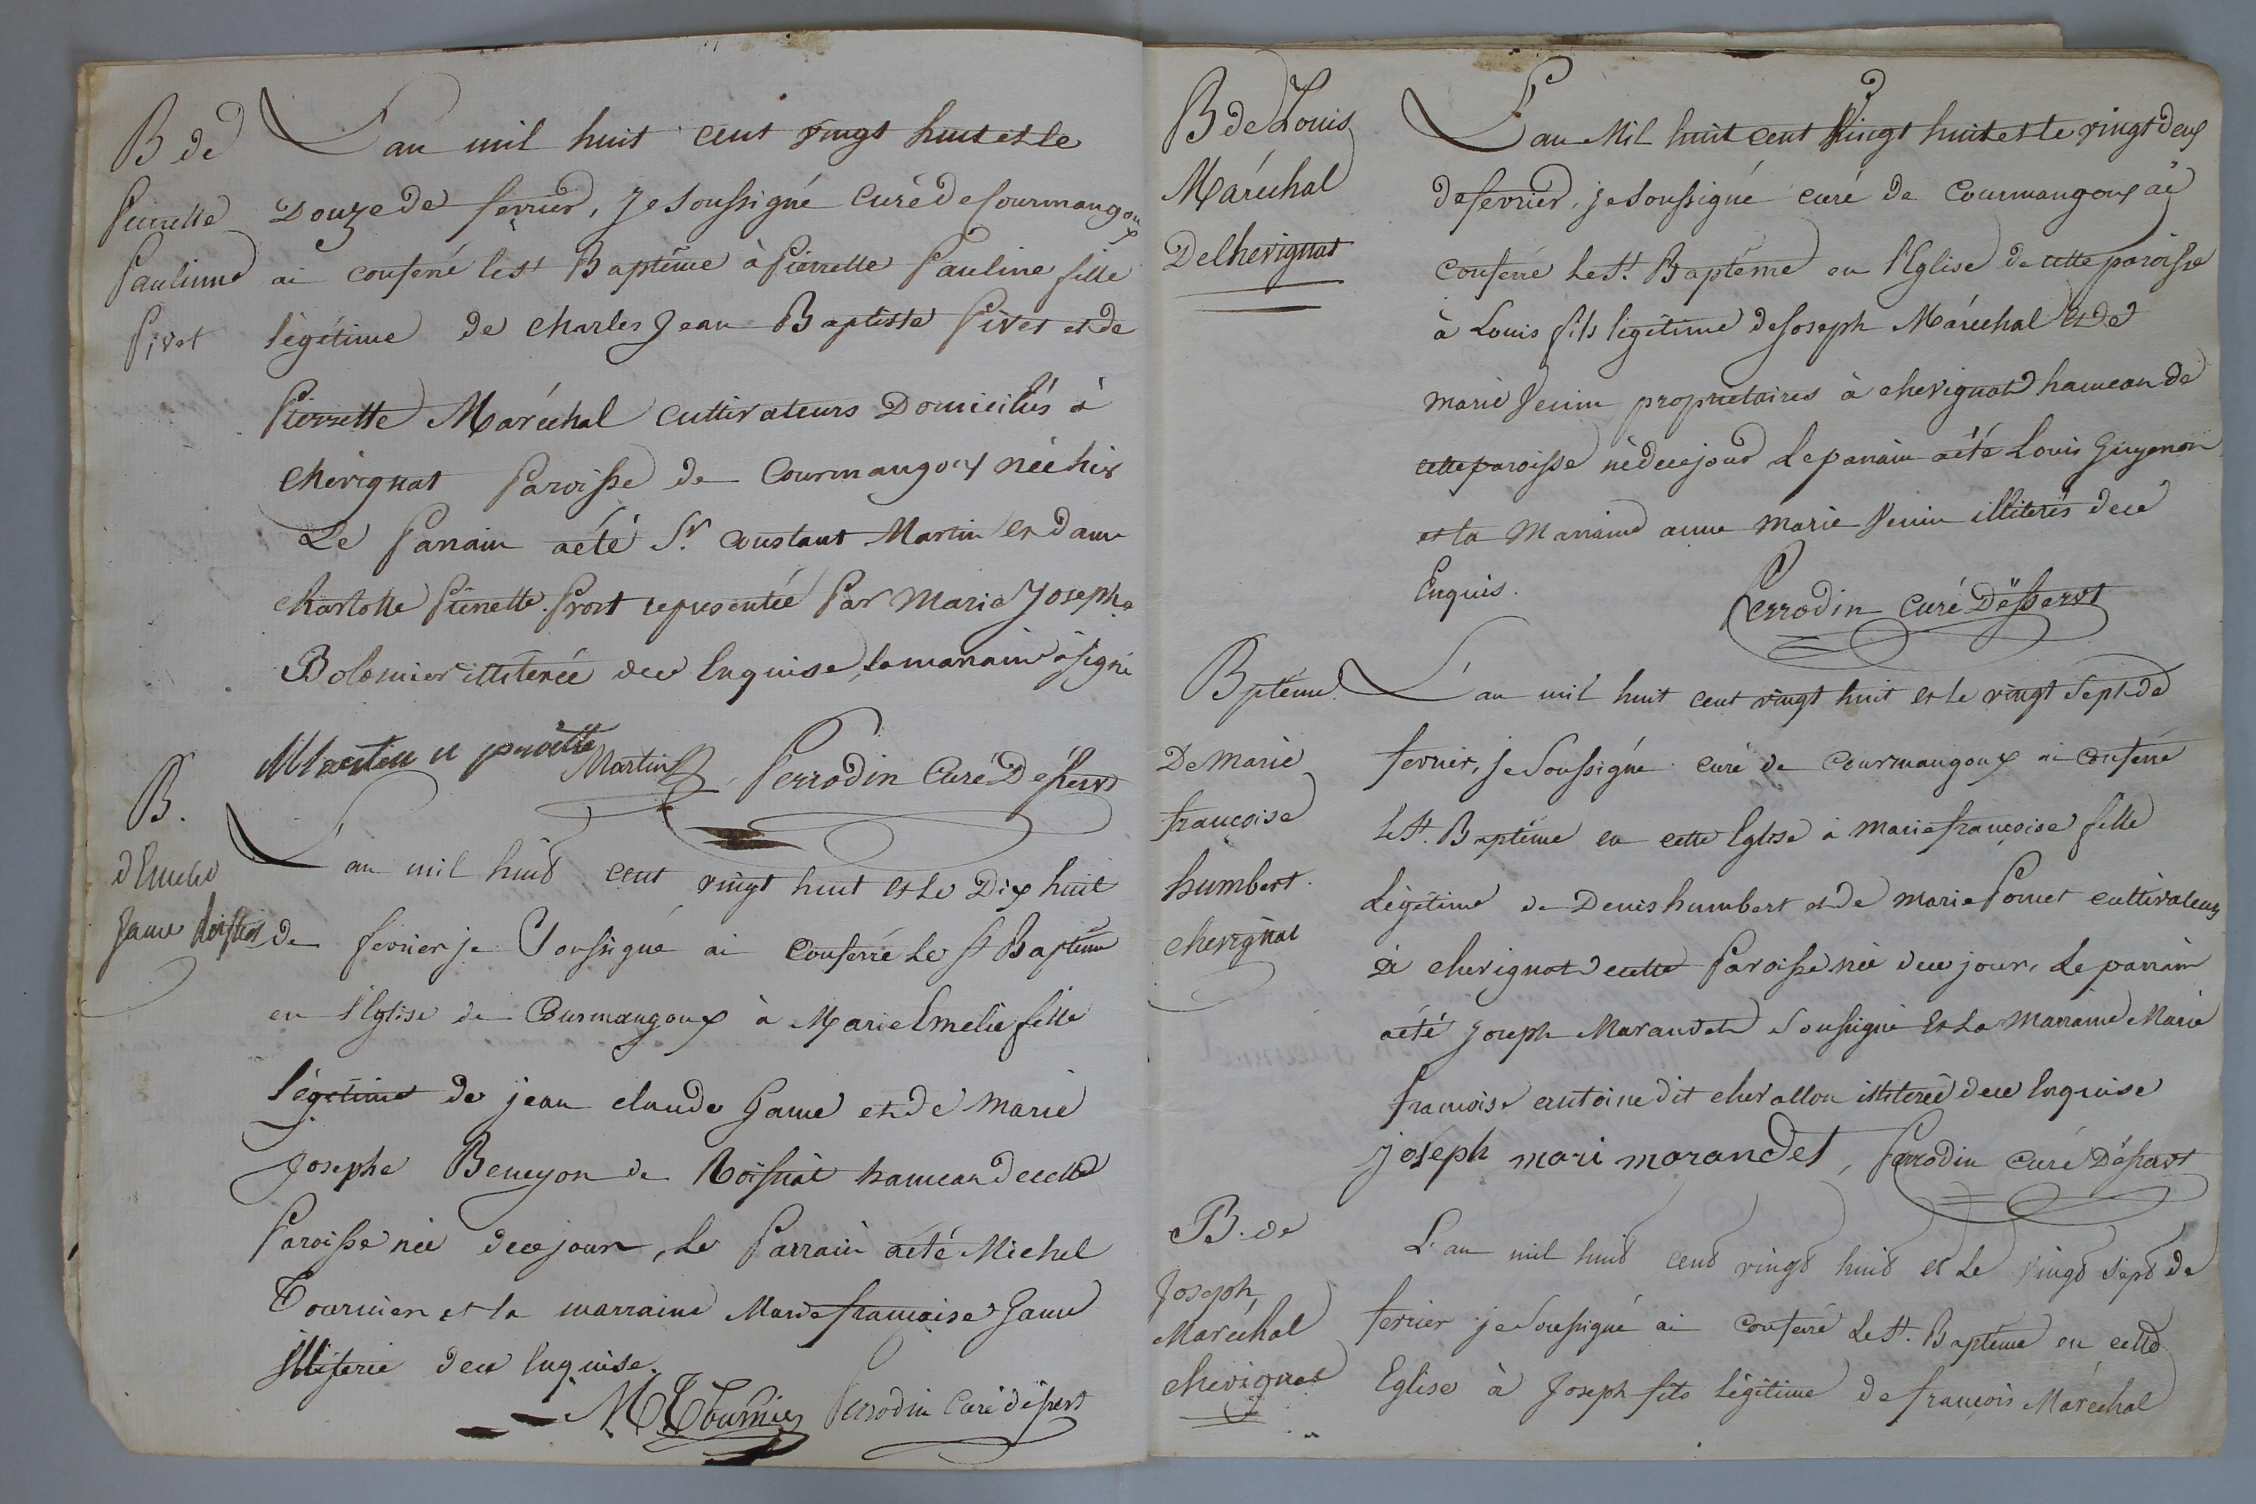 B de
Pierrette
Paulinne
Pivet
L'an mil huit cent vingt huit et le
Douze de fevrier, Je soussigné curé de Courmangoux
ai conferé le st Baptême à Pierrette Pauline fille
légitime de Charles Jean Baptiste Pivet et de
Pierrette Maréchal cultivateurs Domiciliés à
Chévignat Paroisse de Courmangoux née hier
Le Parrain a été Sr. Constant Martin et dame
Charlotte Pierrette Prost representée Par Marie Josephe
Bolomier illiterée de ce Enquise, la marraine a signé
Martin Perrodin Curé Desserst
B.
d'Emelie
Jame
L'an mil huit cent vingt huit et le Dix huit
de fevrier je Soussigné ai conferré le st Baptême
en l'Eglise de Courmangoux à Marie Emelie fille
légitime de jean claude Jame et de Marie
Josephe Beneyon de Roissiat hameau de cette
Paroisse née de ce jour, Le Parrain a été Michel
Tournier et la marraine Marie francoise Jame
illiterée de ce Enquise.
M Tournier Perrodin Curé déssert
B de Louis
Maréchal
De Chevignat
L'an Mil huit cent Vingt huit et le vingt deux
de fevrier, je soussigné curé de Courmangoux ai
conferré le St. Baptême en l'Eglise de cette paroisse
à Louis fils legitime de Joseph Maréchal et de
marie Venin proprietaires à chevignat hameau de
cette paroisse né de ce jour Le parrain a été Louis Guyenon
et la Marraine anne marie Venin illiterés de ce
Enquis.
Perrodin curé Desserst
Bptême
De Marie
françoise
humbert
chevignat
L'an mil huit cent vingt huit et le vingt sept de
fevrier, je Soussigné curé de Courmangoux ai conferré
le St. Baptême en cette Eglise à Marie françoise fille
Légitime de Denis humbert et de Marie Pomet cultivateurs
à chevignat de cette Paroisse née de ce jour, Le parrain
a été Joseph Marandet Soussigné et La Marraine Marie
francoise antoine dit chevallon illiterée de ce Enquise
joseph mari morandet, Perrodin curé Desserst
B. de
Joseph
Maréchal
chevignat
L'an mil huit cent vingt huit et Le vingt sept de
fevrier je Soussigné ai conferré Le St. Baptême en cette
Eglise à Joseph fils légitime de françois Maréchal